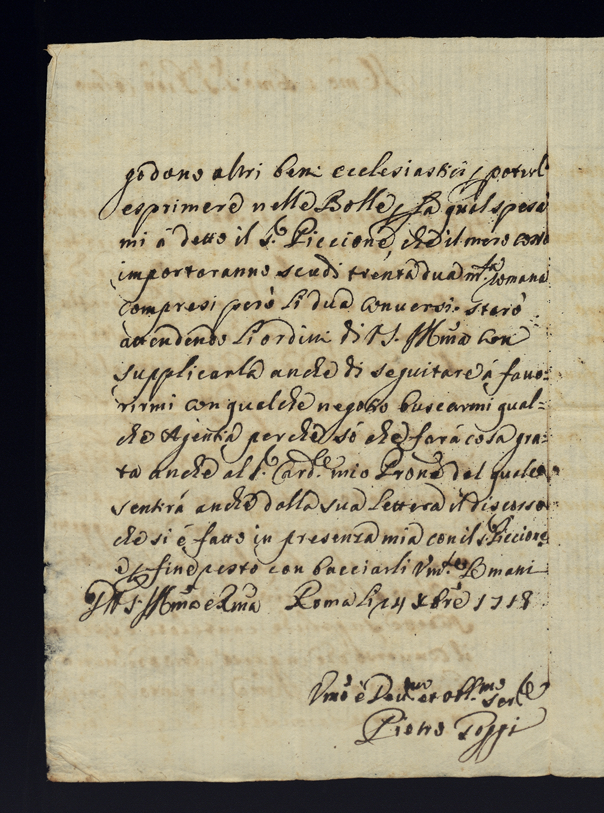 godono altri beni ecclesiastici p poterli
esprimere nelle Bolle, la qual spesa
mi á detto il S.r Piccione, che il mero costo
importaranno scudi trenta dua m.ta romana
compresi però li dua conversi. starò
attendendo li ordini di V S. Ill.ma con
supplicarla anche di seguitare á favo:
rirmi con qualche negotio buscarmi qual=
che Agentia perche só che fará cosa gra=
ta anche al S.r Card.le mio Prone dal quale
sentirá anche dalla sua lettera il discorso
che si é fatto in presenza mia con il S. Piccione
e p fine resto con bacciarli Um.te le mani
D V S Ill.ma e R.ma Roma li 14 Xbre 1718
Umo é Deu.mo et obl.mo Ser.e
Pietro Poggi